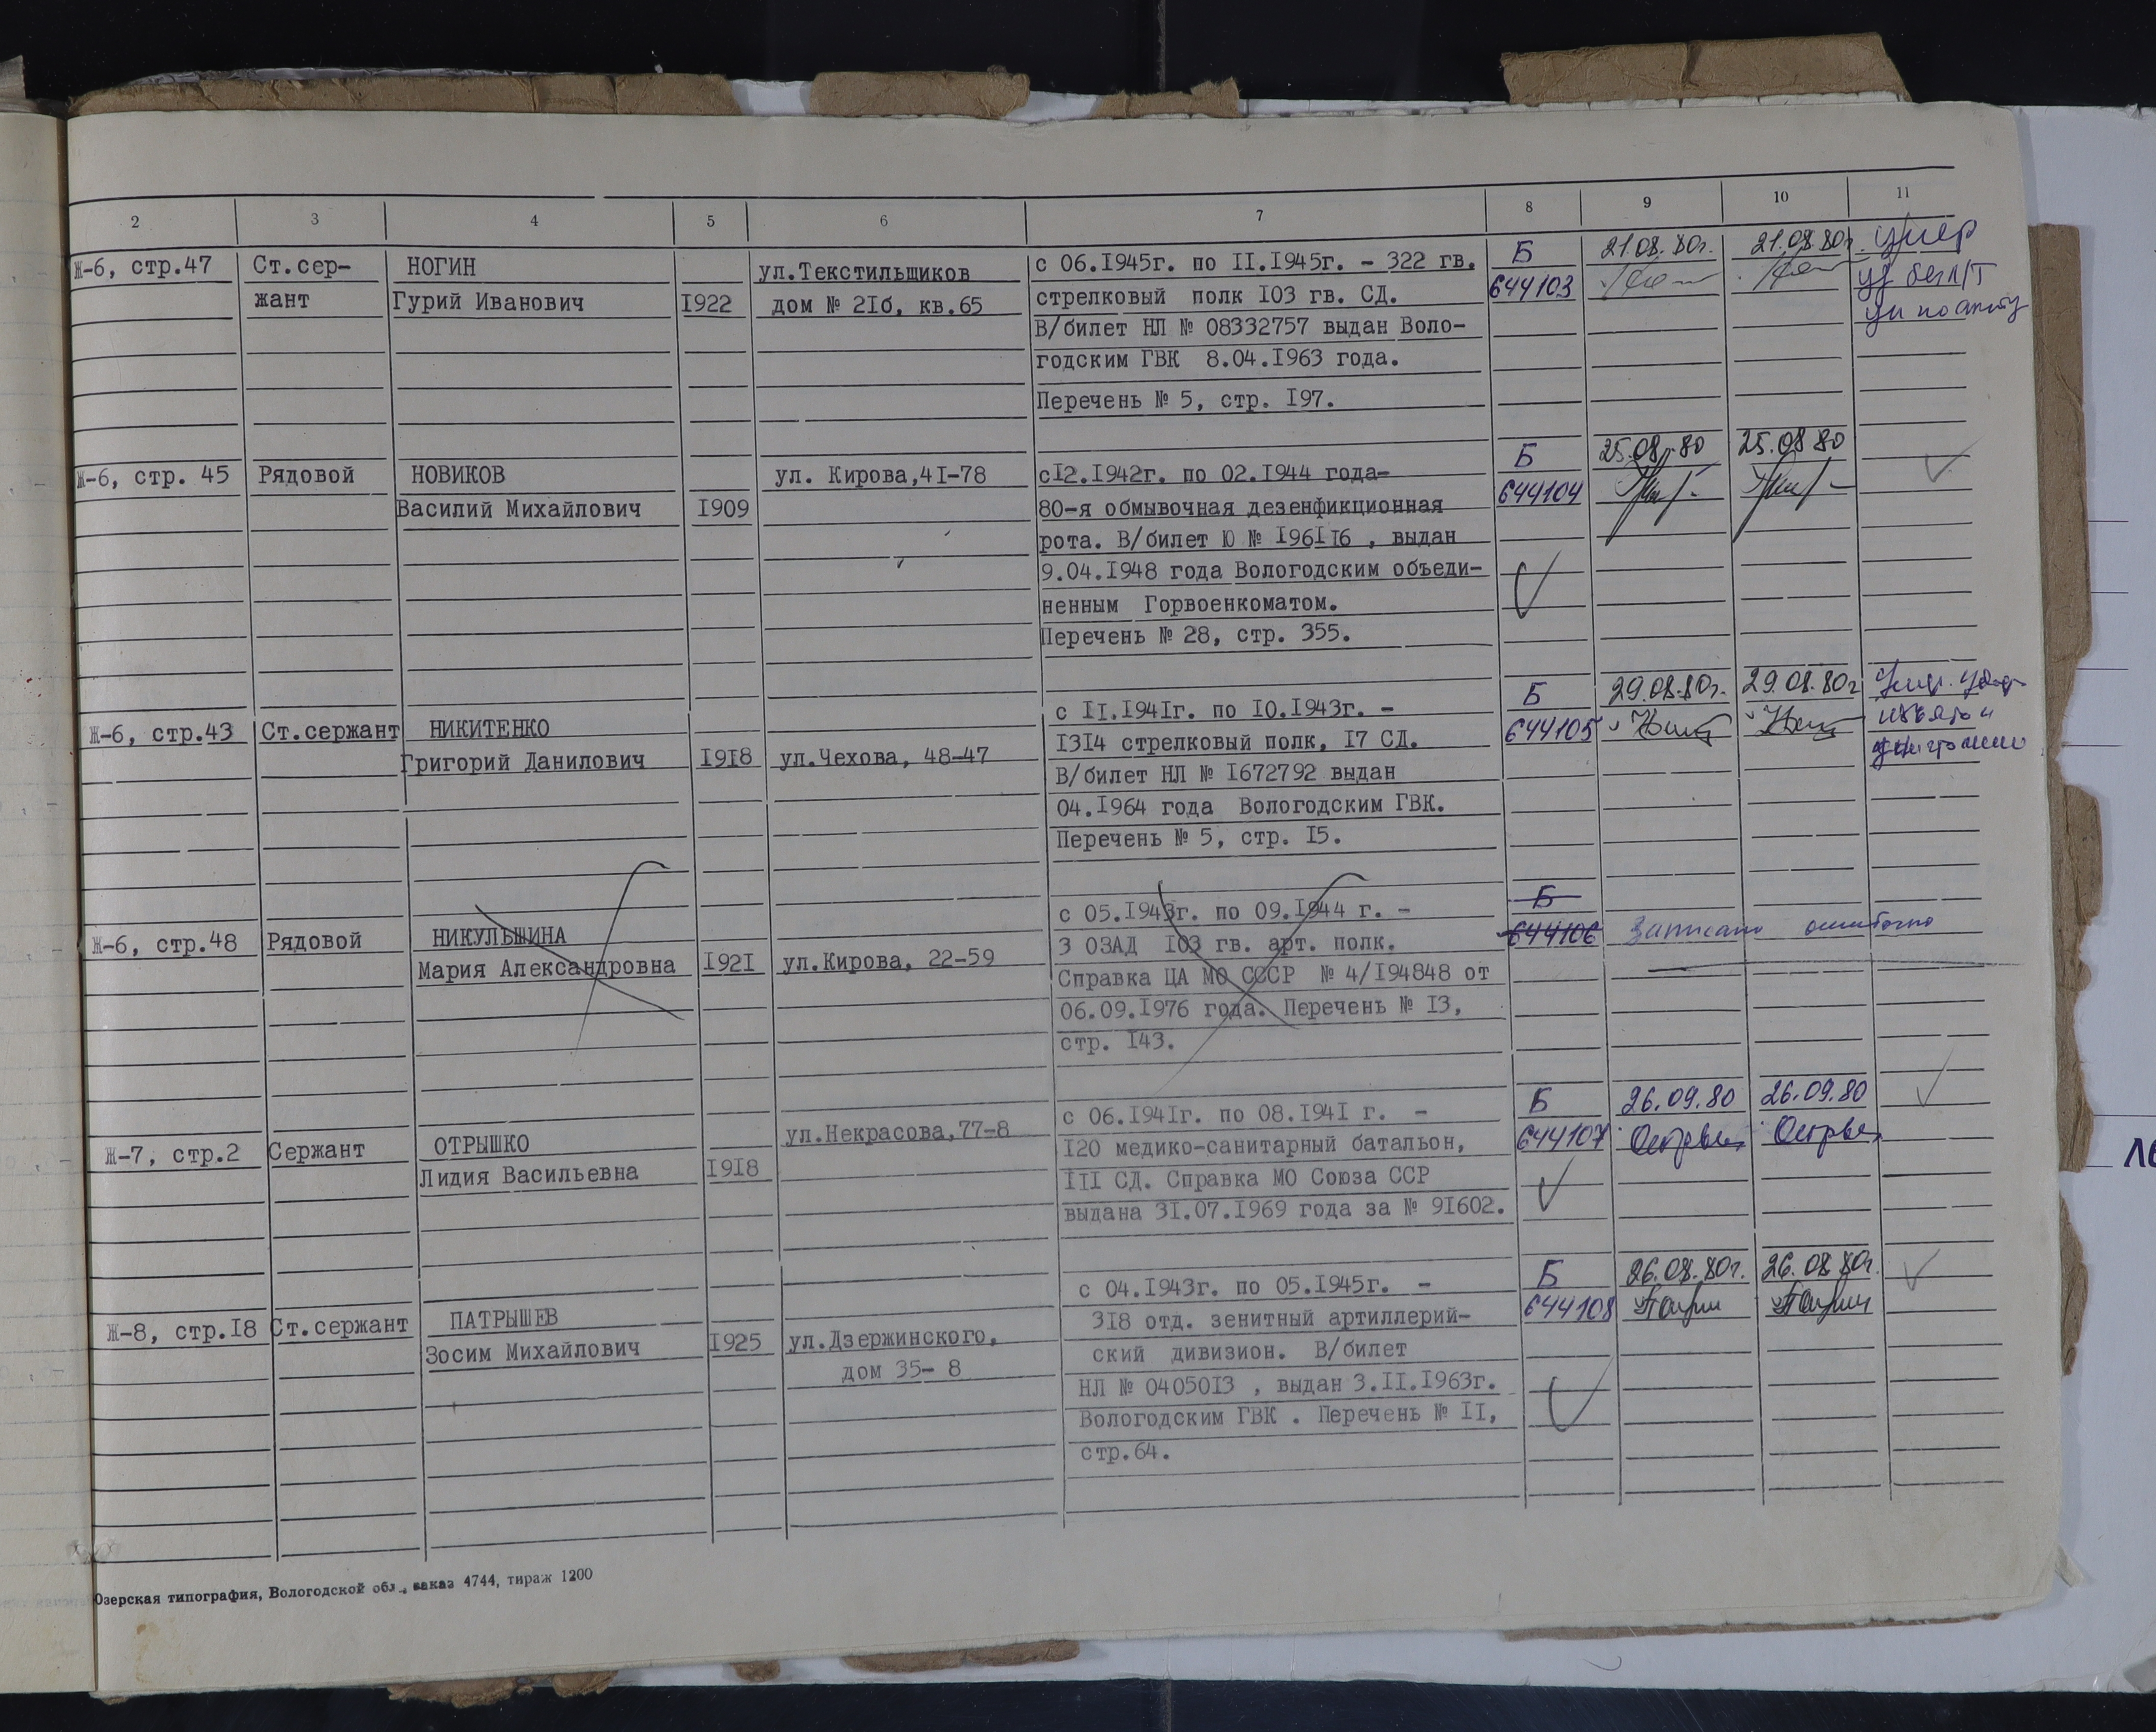 2 3 4 5 6 7 8 9 10 11
Ж-6, стр.47 Ст.сер- НОГИН ул.Текстильщиков с 06.I945г. по II.I945г. - 322 гв. Б 21.08.80г. 21.08.80г. умер
жант Гурий Иванович I922 дом № 2Iб, кв.65 стрелковый полк I03 гв. СД. 644103
В/билет НЛ № 08332757 выдан Воло-
годским ГВК 8.04.I963 года.
Перечень № 5, стр. I97.
Ж-6, стр. 45 Рядовой НОВИКОВ ул. Кирова,4I-78 сI2.I942г. по 02.I944 года- Б 25.08.80 25.08 80
Василий Михайлович I909 80-я обмывочная дезенфикционная 644104
рота. В/билет Ю № I96II6 , выдан
9.04.I948 года Вологодским объеди-
ненным Горвоенкоматом.
Перечень № 28, стр. 355.
Ж-6, стр.43 Ст.сержант НИКИТЕНКО с II.I94Iг. по I0.I943г. - Б 29.08.80г. 29.08.80г
Григорий Данилович I9I8 ул.Чехова, 48-47 I3I4 стрелковый полк, I7 СД. 644105 изъято и
В/билет НЛ № I672792 выдан уничтожено
04.I964 года Вологодским ГВК.
Перечень № 5, стр. I5.
Ж-6, стр.48 Рядовой НИКУЛЬШИНА с 05.I943г. по 09.I944 г. - Б
Мария Александровна I92I ул.Кирова, 22-59 3 ОЗАД I03 гв. арт. полк. 644106 Записано ошибочно
Справка ЦА МО СССР № 4/I94848 от
06.09.I976 года. Перечень № I3,
стр. I43.
Ж-7, стр.2 Сержант ОТРЫШКО ул.Некрасова,77-8 с 06.I94Iг. по 08.I94I г. - Б 26.09.80 26.09.80
Лидия Васильевна I9I8 I20 медико-санитарный батальон, 644107
III СД. Справка МО Союза ССР
выдана 3I.07.I969 года за № 9I602.
Ж-8, стр.I8 Ст.сержант ПАТРЫШЕВ с 04.I943г. по 05.I945г. - Б 26.08.80г. 26.08.80г.
Зосим Михайлович I925 ул.Дзержинского, 3I8 отд. зенитный артиллерий- 644108
дом 35- 8 ский дивизион. В/билет
НЛ № 04050I3 , выдан 3.II.I963г.
Вологодским ГВК . Перечень № II,
стр.64.
Озерская типография, Вологодской обл., заказ 4744, тираж 1200